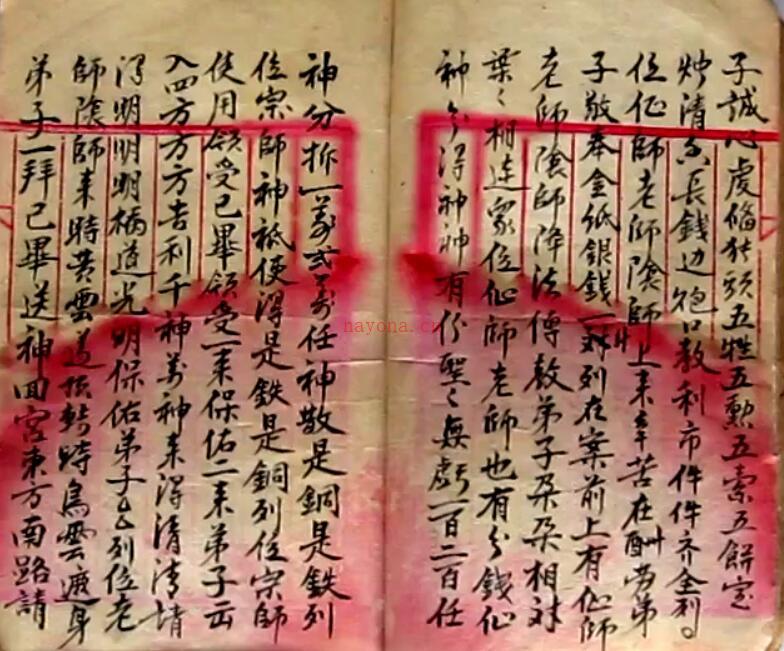 子誠心虔俻猪頭五牲五勲五索五餅定
炉清香長錢边炮口数利市件件齐全列
位仙師老師陰師上来辛苦在酬劳弟
子敬奉金纸銀銭一対列在案前上有仙師
老師陰師降法傳教弟子朶朶相対
葉〻相連衆位仙師老師也有分錢仙
神分得神神有份聖〻無虧一百二百任
神分拆一萬弍萬任神散是銅是鉄列
位宗師神祇使得是鉄是銅列位宗師
使用領受已畢領受一来保佑二来弟子云
入四方方方吉利千神萬神来得清清
得明明明橋道光明保佑弟子厶列位老
師陰師来時黄雲盖頂轉時烏雲遮身
弟子一拜已畢送神回宮東方南路請
nayona.cn